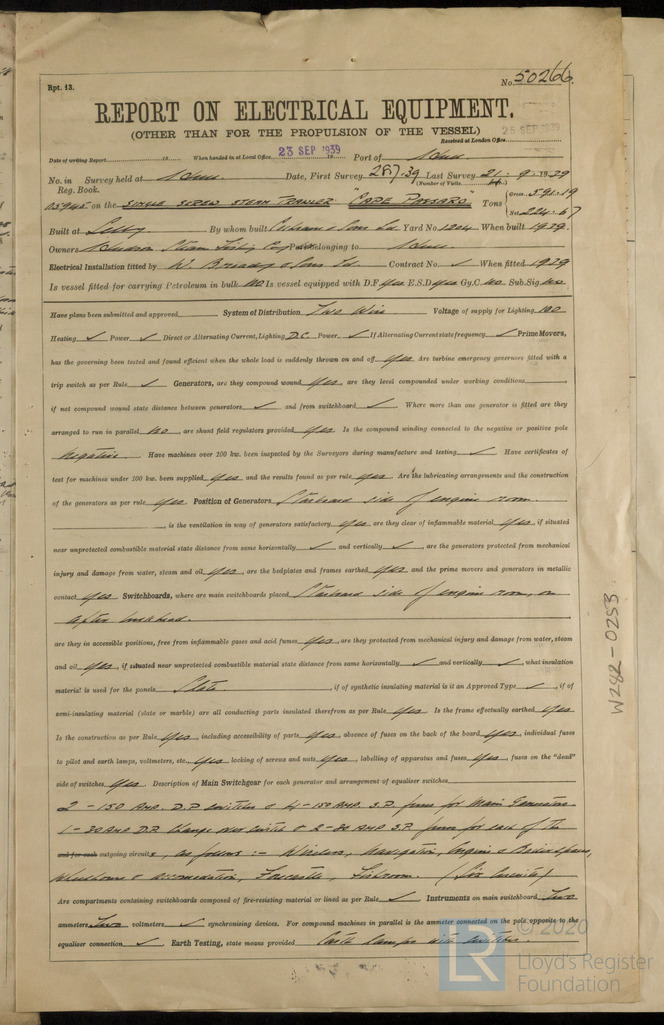 Rpt. 13.
No. 50266.
REPORT ON ELECTRICAL EQUIPMENT.
(OTHER THAN FOR THE PROPULSION OF THE VESSEL)
25 SEP 1939
Received at London Office
Date of writing Report 19 When handed in at Local Office 23 SEP 1939 19 Port of Hull
No. in Survey held at Hull Date, First Survey 28.7.39 Last Survey 21.9.1939
Reg. Book. (Number of Visits )
on the SINGLE SCREW STEAM TRAWLER "CAPE PASSARO" Tons Gross 591.19
Net 224.67
Built at Selby By whom built Cochrane & Sons Ld. Yard No. 1204 When built 1939.
Owners Hudson Steam Fishing Coy Port belonging to Hull
Electrical Installation fitted by W. Broady & Sons Ld. Contract No. ✓ When fitted 1939
Is vessel fitted for carrying Petroleum in bulk No Is vessel equipped with D.F. Yes E.S.D. Yes Gy.C. No Sub.Sig. No
Have plans been submitted and approved System of Distribution Two Wire Voltage of supply for Lighting 110
Heating ✓ Power ✓ Direct or Alternating Current, Lighting D.C. Power ✓ If Alternating Current state frequency ✓ Prime Movers,
has the governing been tested and found efficient when the whole load is suddenly thrown on and off Yes Are turbine emergency governors fitted with a
trip switch as per Rule ✓ Generators, are they compound wound Yes, are they level compounded under working conditions ,
if not compound wound state distance between generators ✓ and from switchboard ✓. Where more than one generator is fitted are they
arranged to run in parallel No, are shunt field regulators provided Yes Is the compound winding connected to the negative or positive pole
Negative. Have machines over 100 kw. been inspected by the Surveyors during manufacture and testing ✓ Have certificates of
test for machines under 100 kw. been supplied Yes and the results found as per rule Yes Are the lubricating arrangements and the construction
of the generators as per rule Yes Position of Generators Starboard side of engine room.
, is the ventilation in way of generators satisfactory Yes are they clear of inflammable material Yes, if situated
near unprotected combustible material state distance from same horizontally ✓ and vertically ✓, are the generators protected from mechanical
injury and damage from water, steam and oil Yes, are the bedplates and frames earthed Yes and the prime movers and generators in metallic
contact Yes Switchboards, where are main switchboards placed Starboard side of engine room, on
after bulkhead.
are they in accessible positions, free from inflammable gases and acid fumes Yes, are they protected from mechanical injury and damage from water, steam
and oil Yes, if situated near unprotected combustible material state distance from same horizontally ✓ and vertically ✓, what insulation
material is used for the panels Slate, if of synthetic insulating material is it an Approved Type ✓, if of
semi-insulating material (slate or marble) are all conducting parts insulated therefrom as per Rule Yes Is the frame effectually earthed Yes
Is the construction as per Rule Yes, including accessibility of parts Yes, absence of fuses on the back of the board Yes, individual fuses
to pilot and earth lamps, voltmeters, etc. Yes locking of screws and nuts Yes, labelling of apparatus and fuses Yes, fuses on the "dead"
side of switches Yes. Description of Main Switchgear for each generator and arrangement of equaliser switches
2 - 150 AMP. D.P. switches & 4 - 150 AMP. S.P. fuses for Main Generators
1 - 30 AMP D.P. Change over switch & 2 - 30 AMP S.P. fuses for each of the
and for each outgoing circuits, as follows :- Wireless, Navigation, Engine & Boiler spaces,
Wheelhouse & accomodation, Forecastle, Fishroom. (Six Circuits)
Are compartments containing switchboards composed of fire-resisting material or lined as per Rule ✓ Instruments on main switchboard Two
ammeters Two voltmeters ✓ synchronising devices. For compound machines in parallel is the ammeter connected on the pole opposite to the
equaliser connection ✓. Earth Testing, state means provided Earth lamps with switches.
W282-0253
© 2020
LR
Lloyd's Register
Foundation